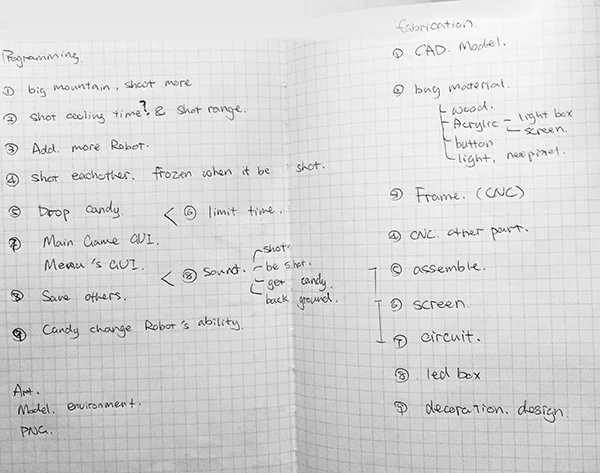 Programming
① big mountain, shoot more
② shot cooling time? & shot range.
③ Add. more Robot.
④ shot eachother. frozen when it be shot.
⑤ Drop candy. < ⑥ limit time.
⑦ Main Game GUI.
Menu's GUI. < ⑧ Sound.
shot
be shot.
get candy.
back ground.
⑧ Save others.
⑨ Candy change Robot's ability.
Art.
Model. environment.
PNG.
fabrication
① CAD. Model.
② buy material.
wood.
Acrylic - light box
screen.
button
light, neopixel.
③ Frame. (CNC)
④ CNC. other part.
⑤ assemble.
⑥ screen.
⑦ circuit.
⑧ led box
⑨ decoration. design.